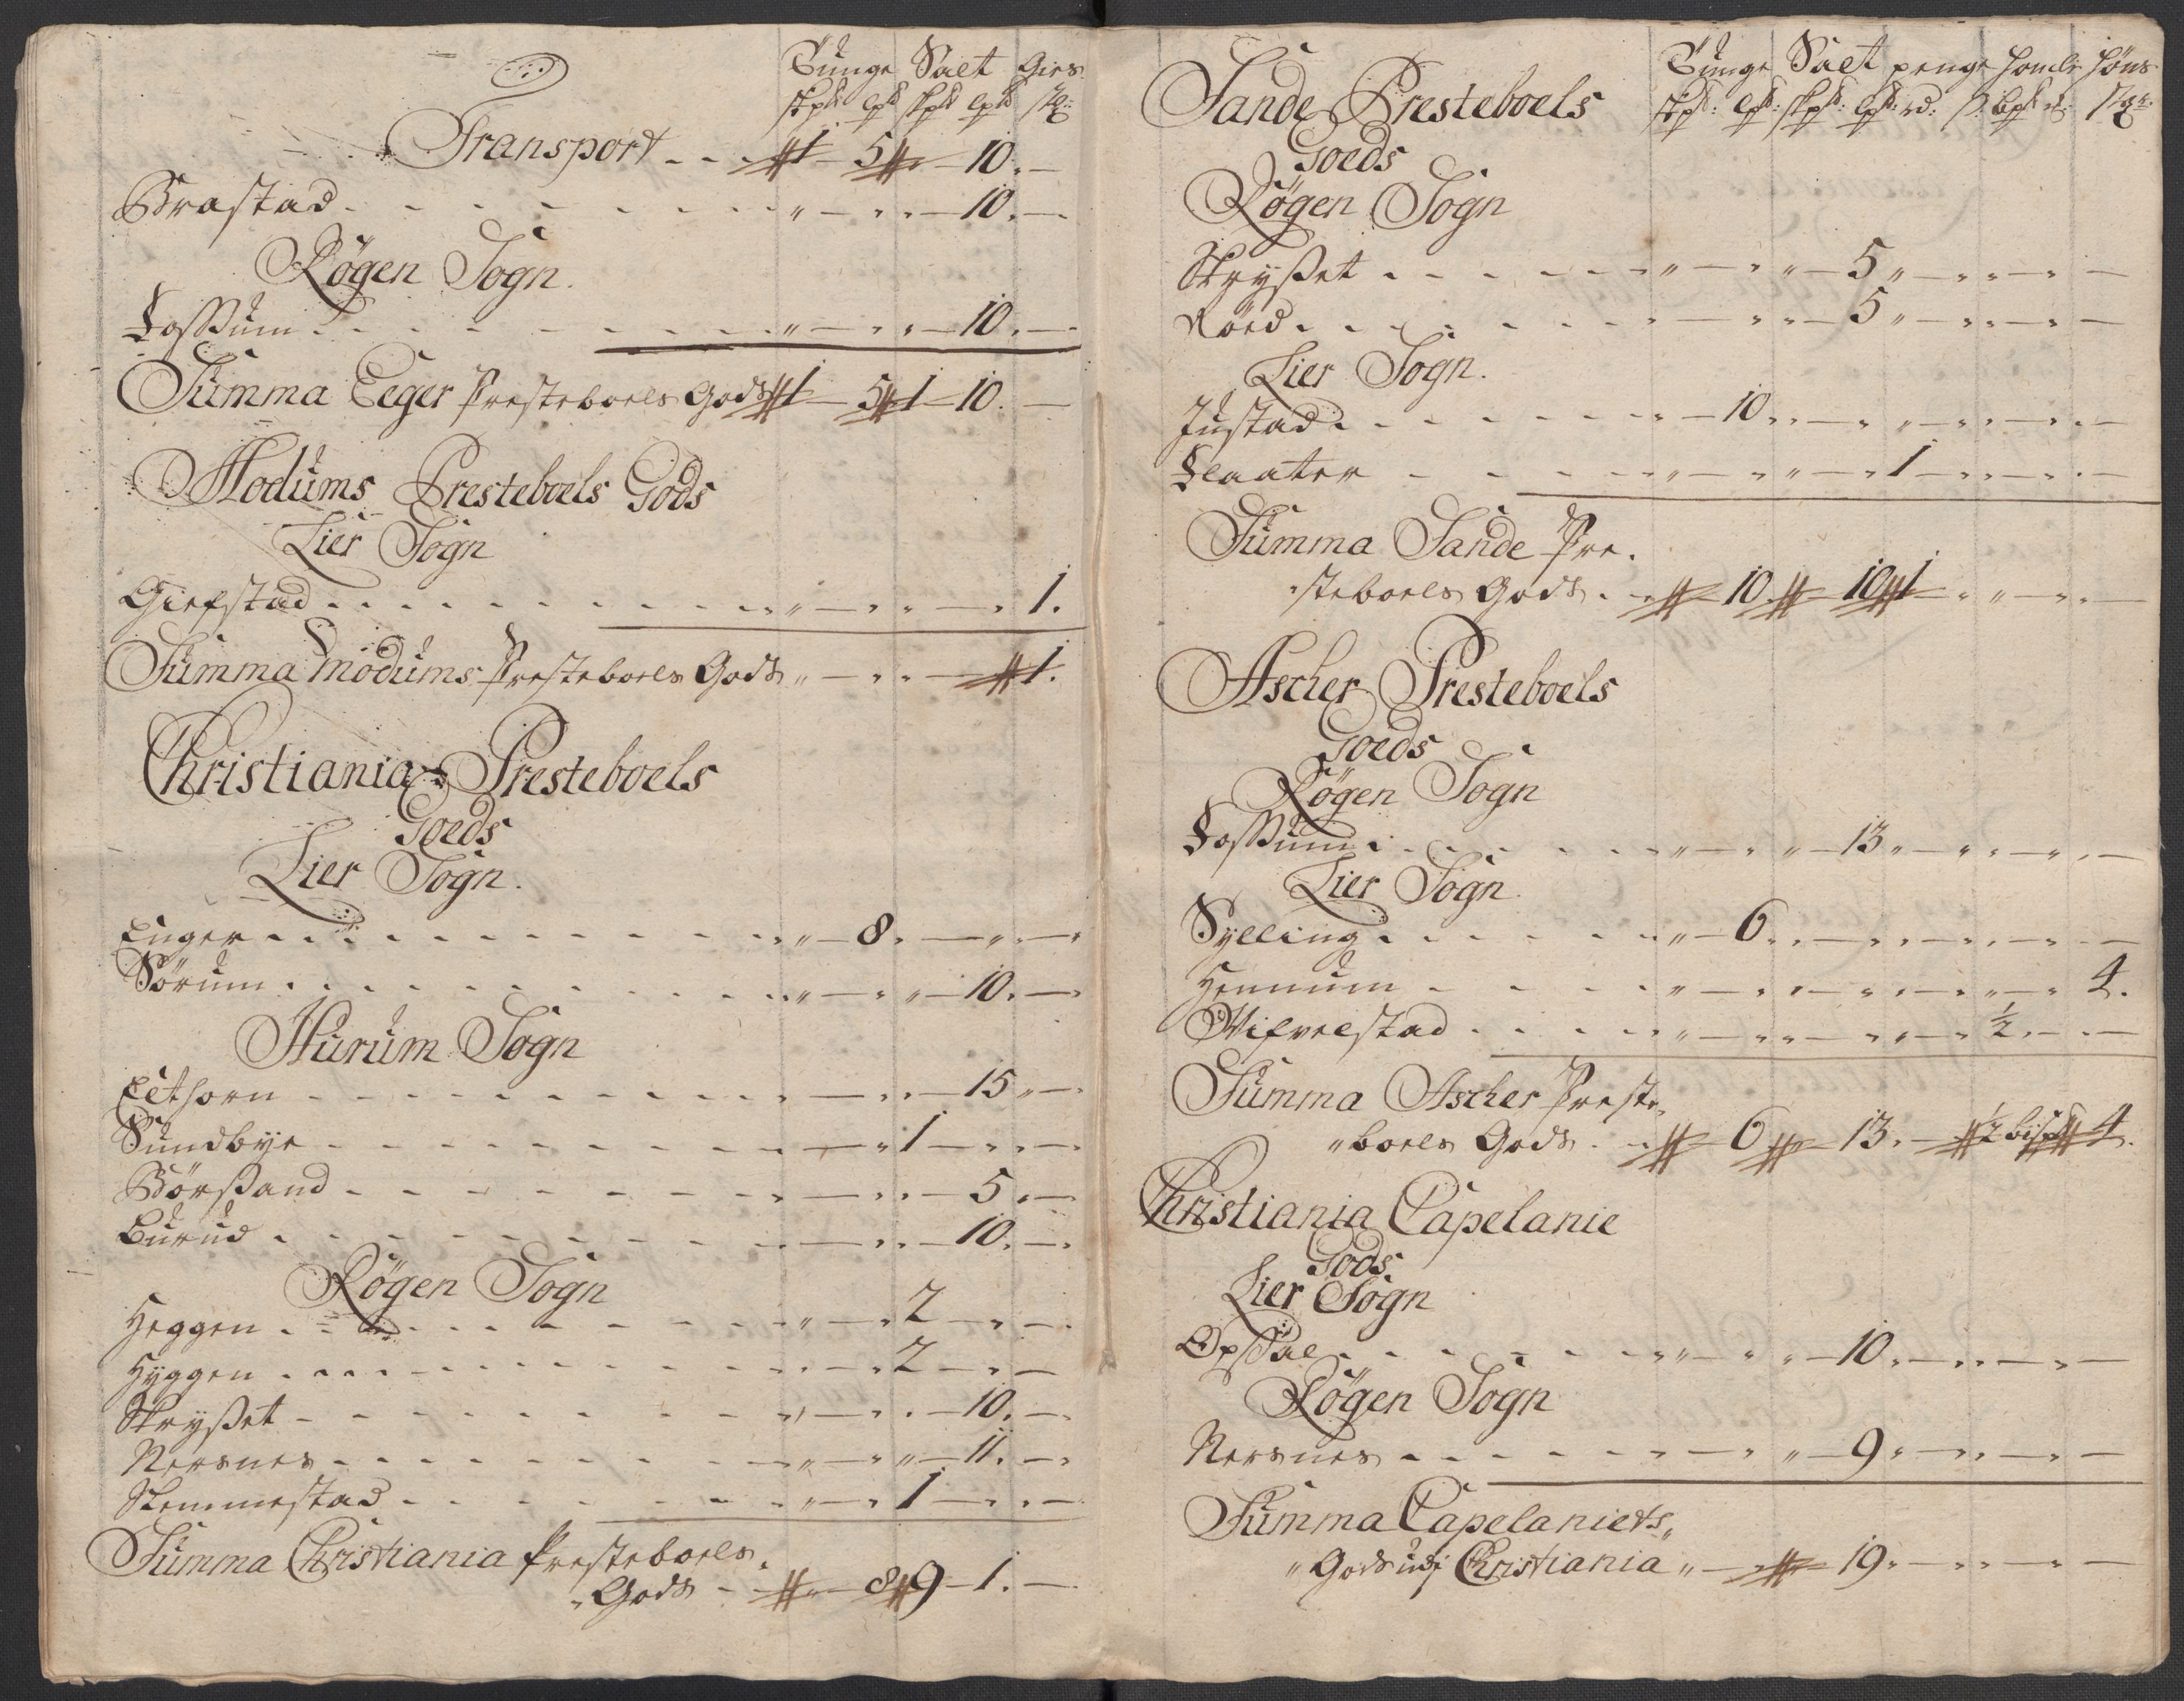 Tunge Salt Gies
skp℔ lp℔ skp℔ lp℔
Transport - - 1 - 5 - 10. -
Brastad - - - - " - " " - 10. -
Røgen Sogn.
Foßum - - - - " - " " - 10. -
Summa Eeger Presteboels Gods 1 - 5 1 - 10. -
Modums Presteboels Gods
Lier Sogn
Giefstad - - - - " - " " - " 1.
Summa Modums Presteboels Gods " - " " - 1.
Christiania Presteboels
Goeds
Lier Sogn.
Enger - - - - " - 8. - " -
Sørum - - - - " - " " - 10. -
Hurum Sogn
Eethorn - - - - - " " - 15 " -
Sundbÿe - - - - - " 1 - " -
Børßand - - - - - " " - 5. -
Burud - - - - - " " - 10. -
Røgen Sogn
Heggen - - - - " - " 2 - " -
Hyggen - - - - - " 2 - " -
Skryßet - - - - " - " " - 10. -
Nersnes - - - - " - " " - 11. -
Slemmestad - - - - " - " 1 - " -
Summa Christiania Presteboels
Gods - " - 8 9 - 1. -
Tunge Salt penge Homle Høns
skp℔: lp℔: skp℔: lp℔: rd:
Sande Presteboels
Goeds
Røgen Sogn
Skryßet - - - - " - " " - 5 " - " " - " -
Røed - - - - - " " - 5 " - " " - " -
Lier Sogn.
Justad - - - - - 10 " " - " " - " " - " -
Flaater - - - - " - " " - " 1 - " " - " -
Summa Sande Pre-
steboels Gods. - 10 10 1 - " " - " -
Ascher Presteboels
Goeds
Røgen Sogn
Foßum - - - - " - " " - 13 " - " " - " -
Lier Sogn
Sylling - - - - " - 6 " " - " " - " " - " -
Hennum - - - - " - " " - " " - " " - " 4.
Wifvelstad - - - - " - " " - " " - ½. - " -
Summa Ascher Preste-
boels Gods. - 6 - 13. - ½ bisp℔ 4.
Christiania Capelanie
Gods
Lier Sogn
Opsal - - - - " - " " - 10. - " " - " -
Røgen Sogn
Nersnes - - - - - " " - 9. - " " - " -
Summa Capelaniets
Gods udj Christiania " - 19. - " " - " -